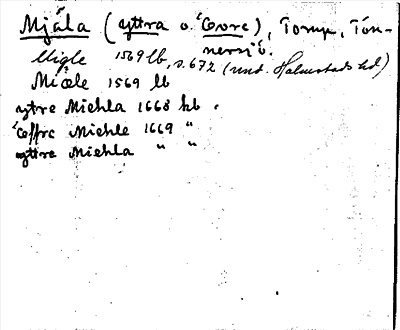 Mjäla (yttra o. Övre), Torup, Tön-
nersjö.
Migle 1569 lb, s. 672 (und. Halmstads hd)
Miæle 1569 lb
ytre Miehla 1668 kb.
öffre Miehle 1669 "
yttre Miehla " "